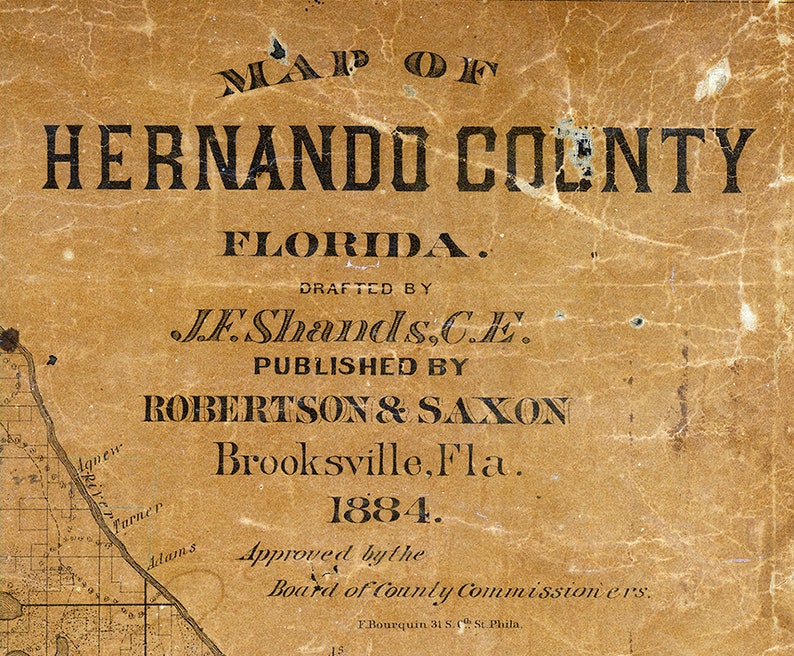 MAP OF
HERNANDO COUNTY
FLORIDA.
DRAFTED BY
J.F. Shands, C.E.
PUBLISHED BY
ROBERTSON & SAXON
Brooksville, Fla.
1884.
Approved by the
Board of County Commissioners.
F. Bourquin 31 S. 6th. St. Phila.
Agnew
River
Turner
Adams